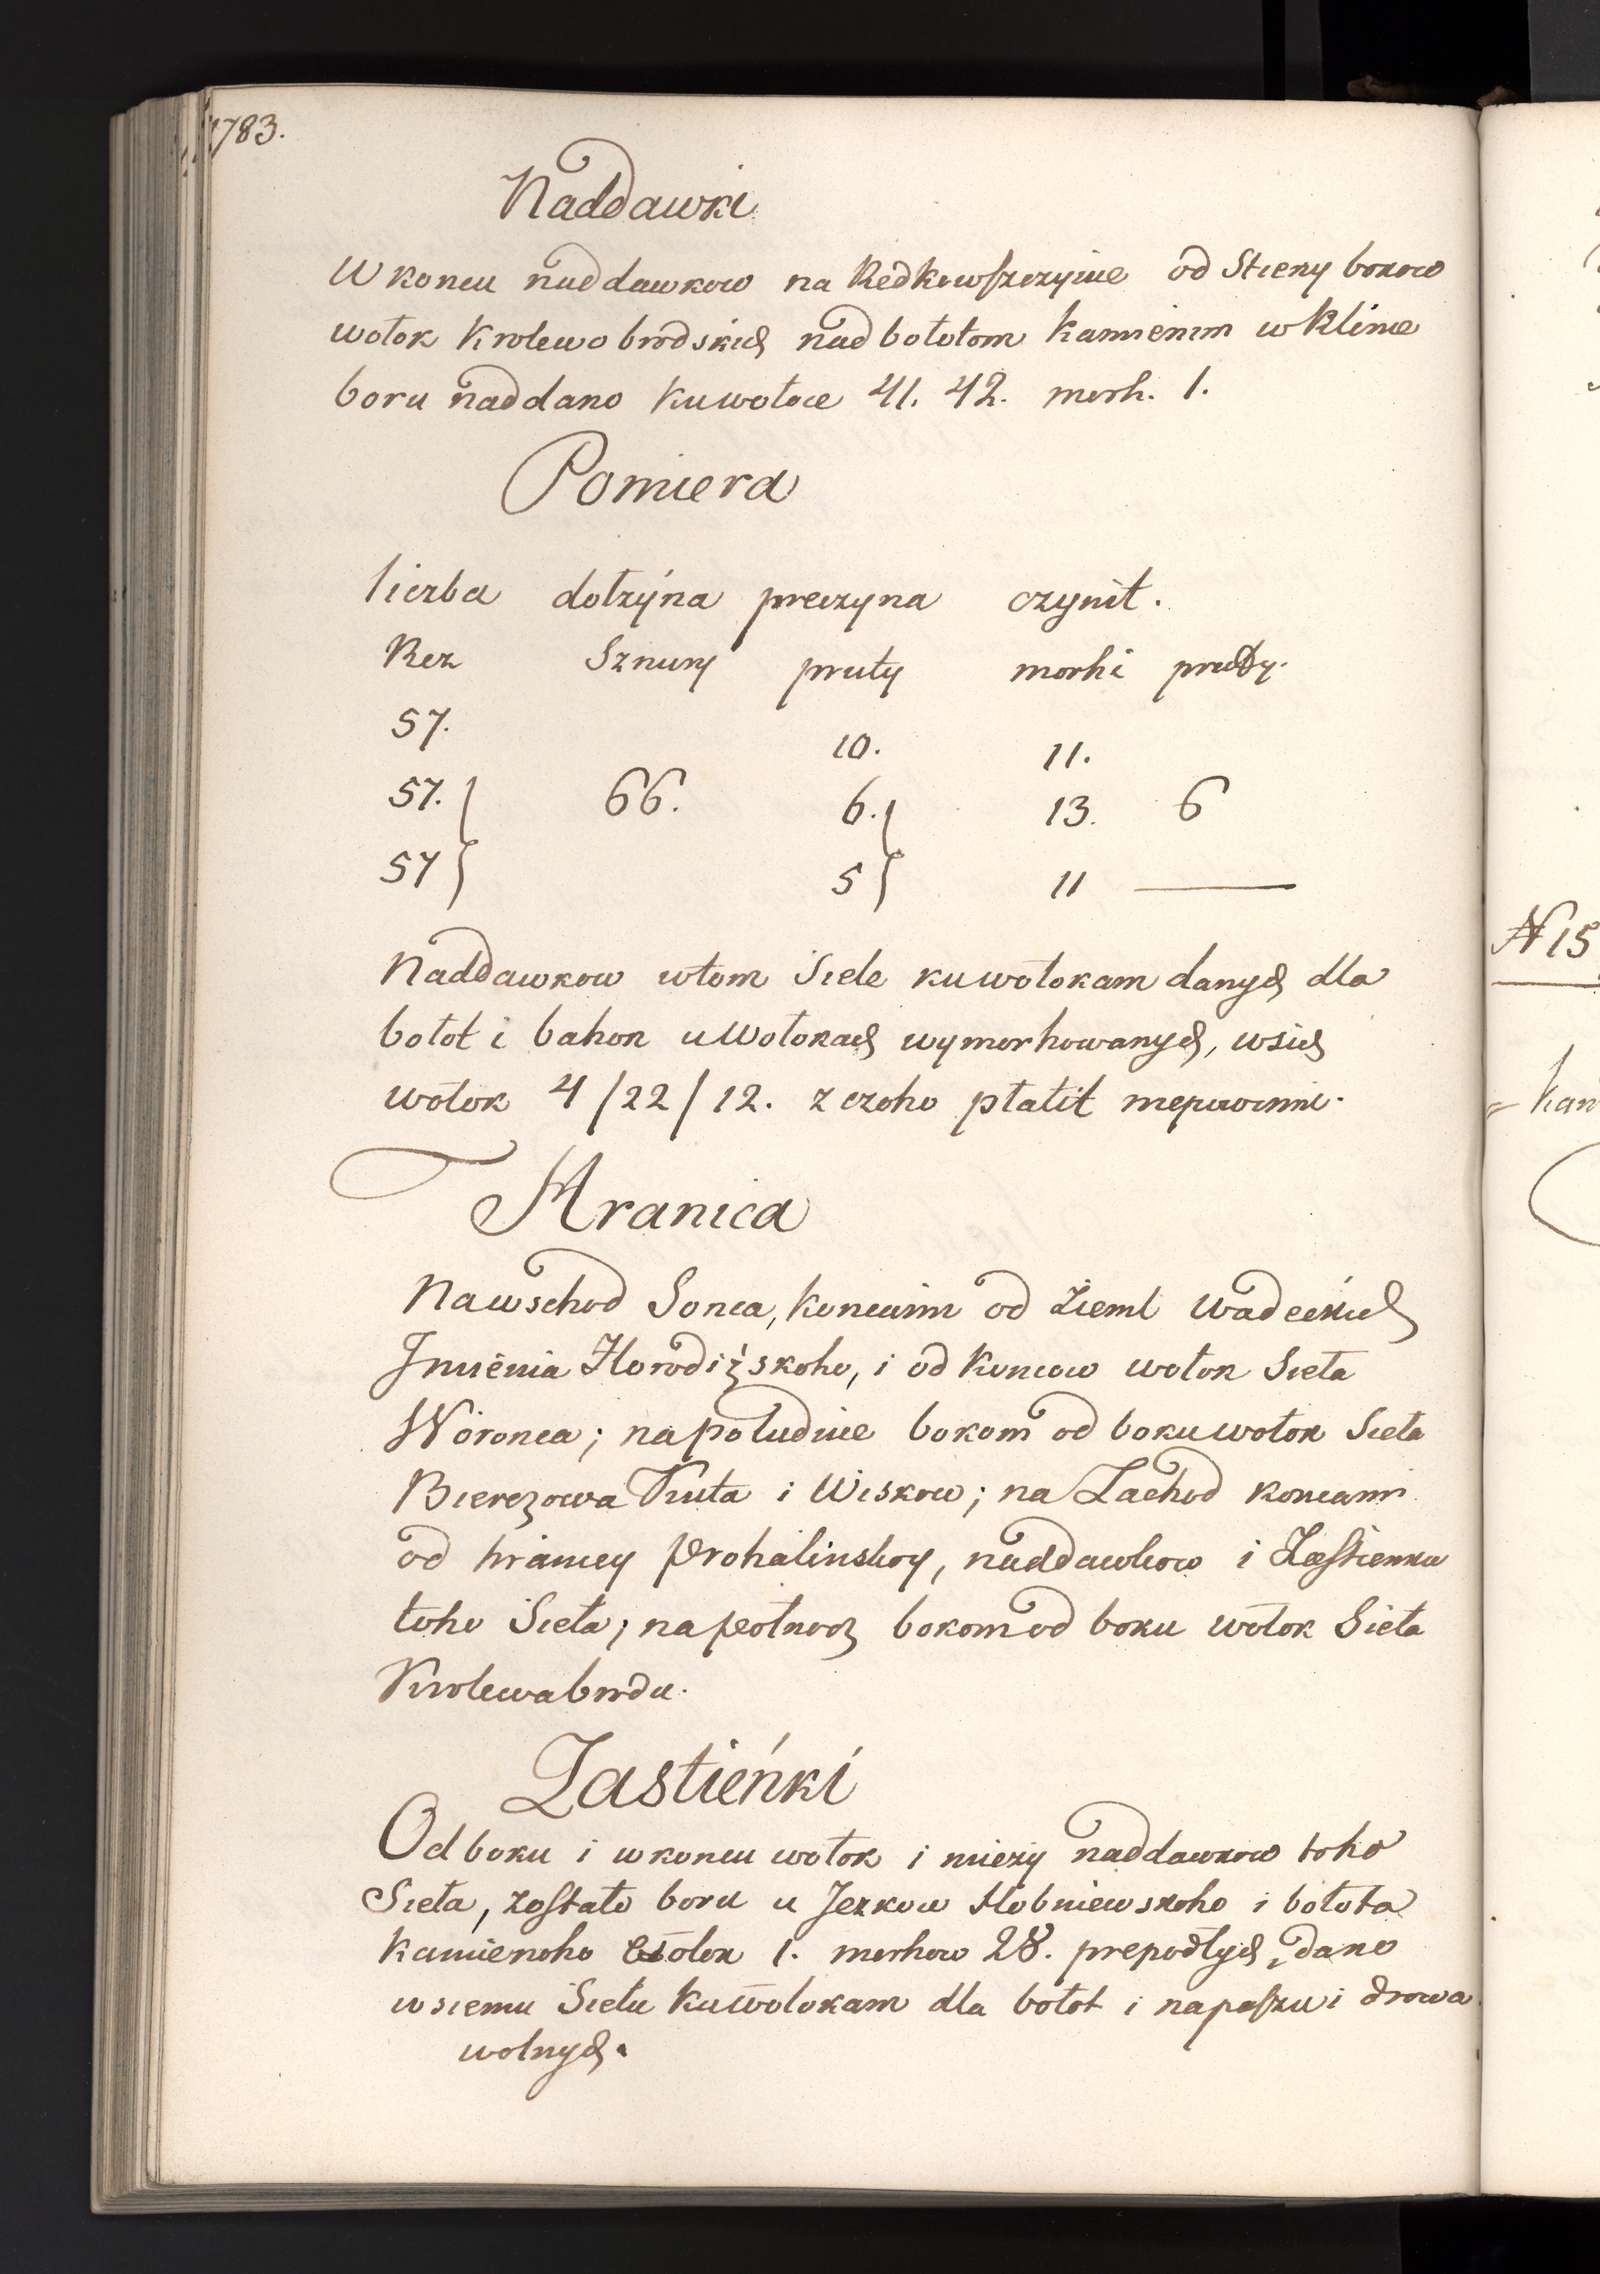 1783.
Naddawki
W koncu naddawkow na Redkowszczyzne od Stieny bokow
wołok Krolewobrodskich nad bołotom kamienim w Klinie
boru naddano ku wołoce 41. 42. morh. 1.
Pomiera
liczba dołzyna preczyna czynit.
Rez Sznury pruty morhi pruty.
57. 10. 11.
57. 66. 6. 13. 6
57 5 11 —
Naddawkow w tom Siele ku wołokam danych dla
bołot i bahon u wołokach wymorhowanych, wsich
wołok 4/22/12. z czoho płatit niepowinni.
Hranica
Na wschod Sonca, koncami od ziemł Wadeckich
Imienia Horodiżskoho, i od koncow wołok Sieła
Woronca; na południe bokom od boku wołok Sieła
Bierezowa Kuta i Wiskow; na Zachod koncami
od hranicy Prohalinskoy, naddawkow i Zastienku
toho Sieła; na połnocz bokom od boku wołok Sieła
Krolewabrodu.
Zastieńki
Od boku i w koncu wołok i miezy naddawkow toho
Sieła, zostało boru u Jezkow Hłobniewskoho i bołota
kamienoho wołok 1. morhow 28. prepodłych, dano
wsiemu Siełu ku wołokam dla bołot i na paszu i drowa
wolnych.
N 15
kam